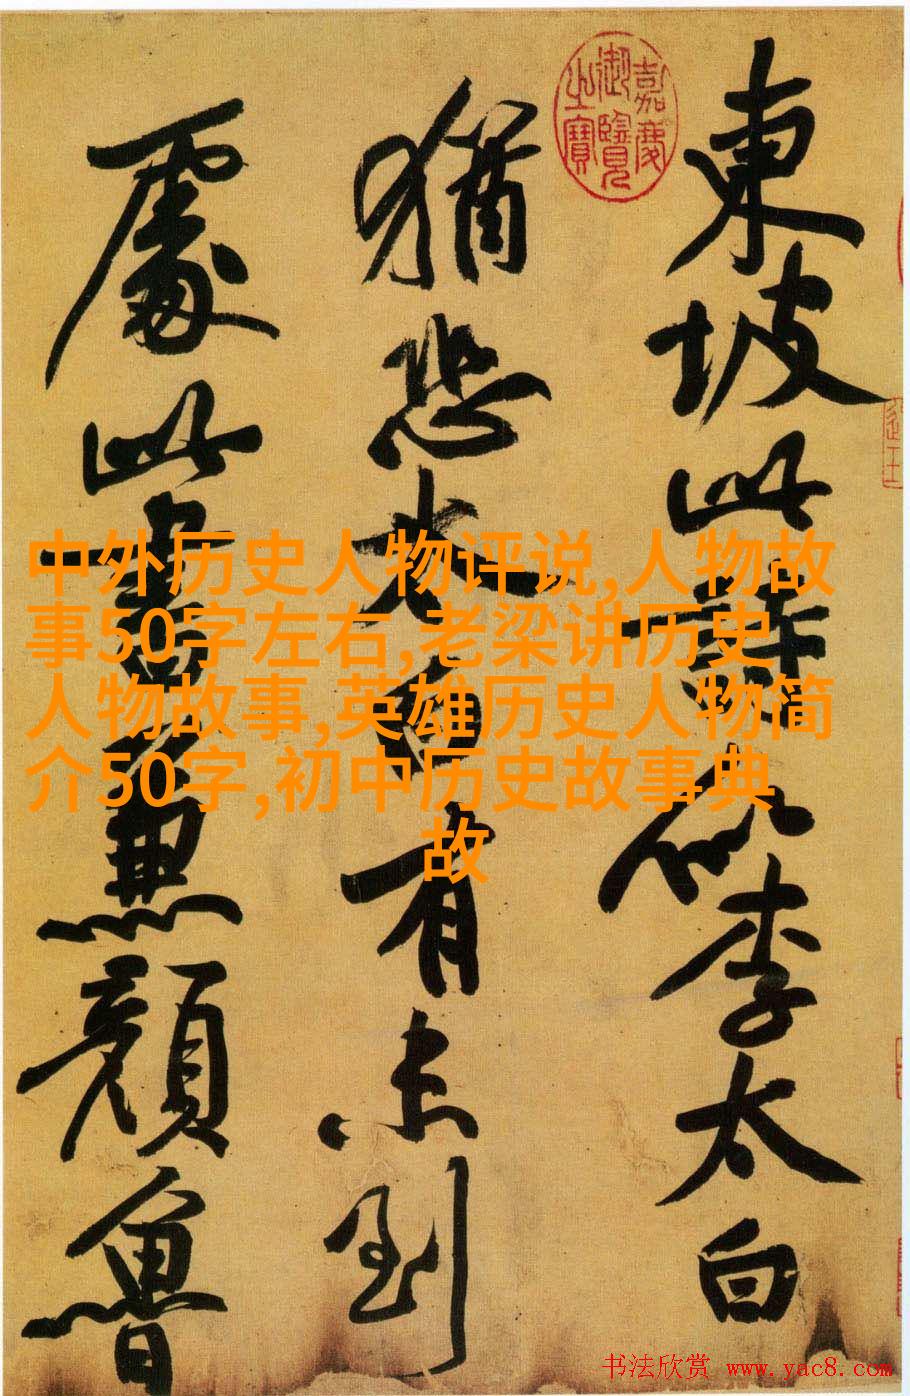 東坡此詩似李太白
猶恐太白有未到
處此書兼顔魯
嘉慶
御覽
之寶
中外历史人物评说,人物故
事50字左右,老梁讲历史
人物故事,英雄历史人物简
介50字,初中历史故事典
故
书法欣赏 www.yac8.com